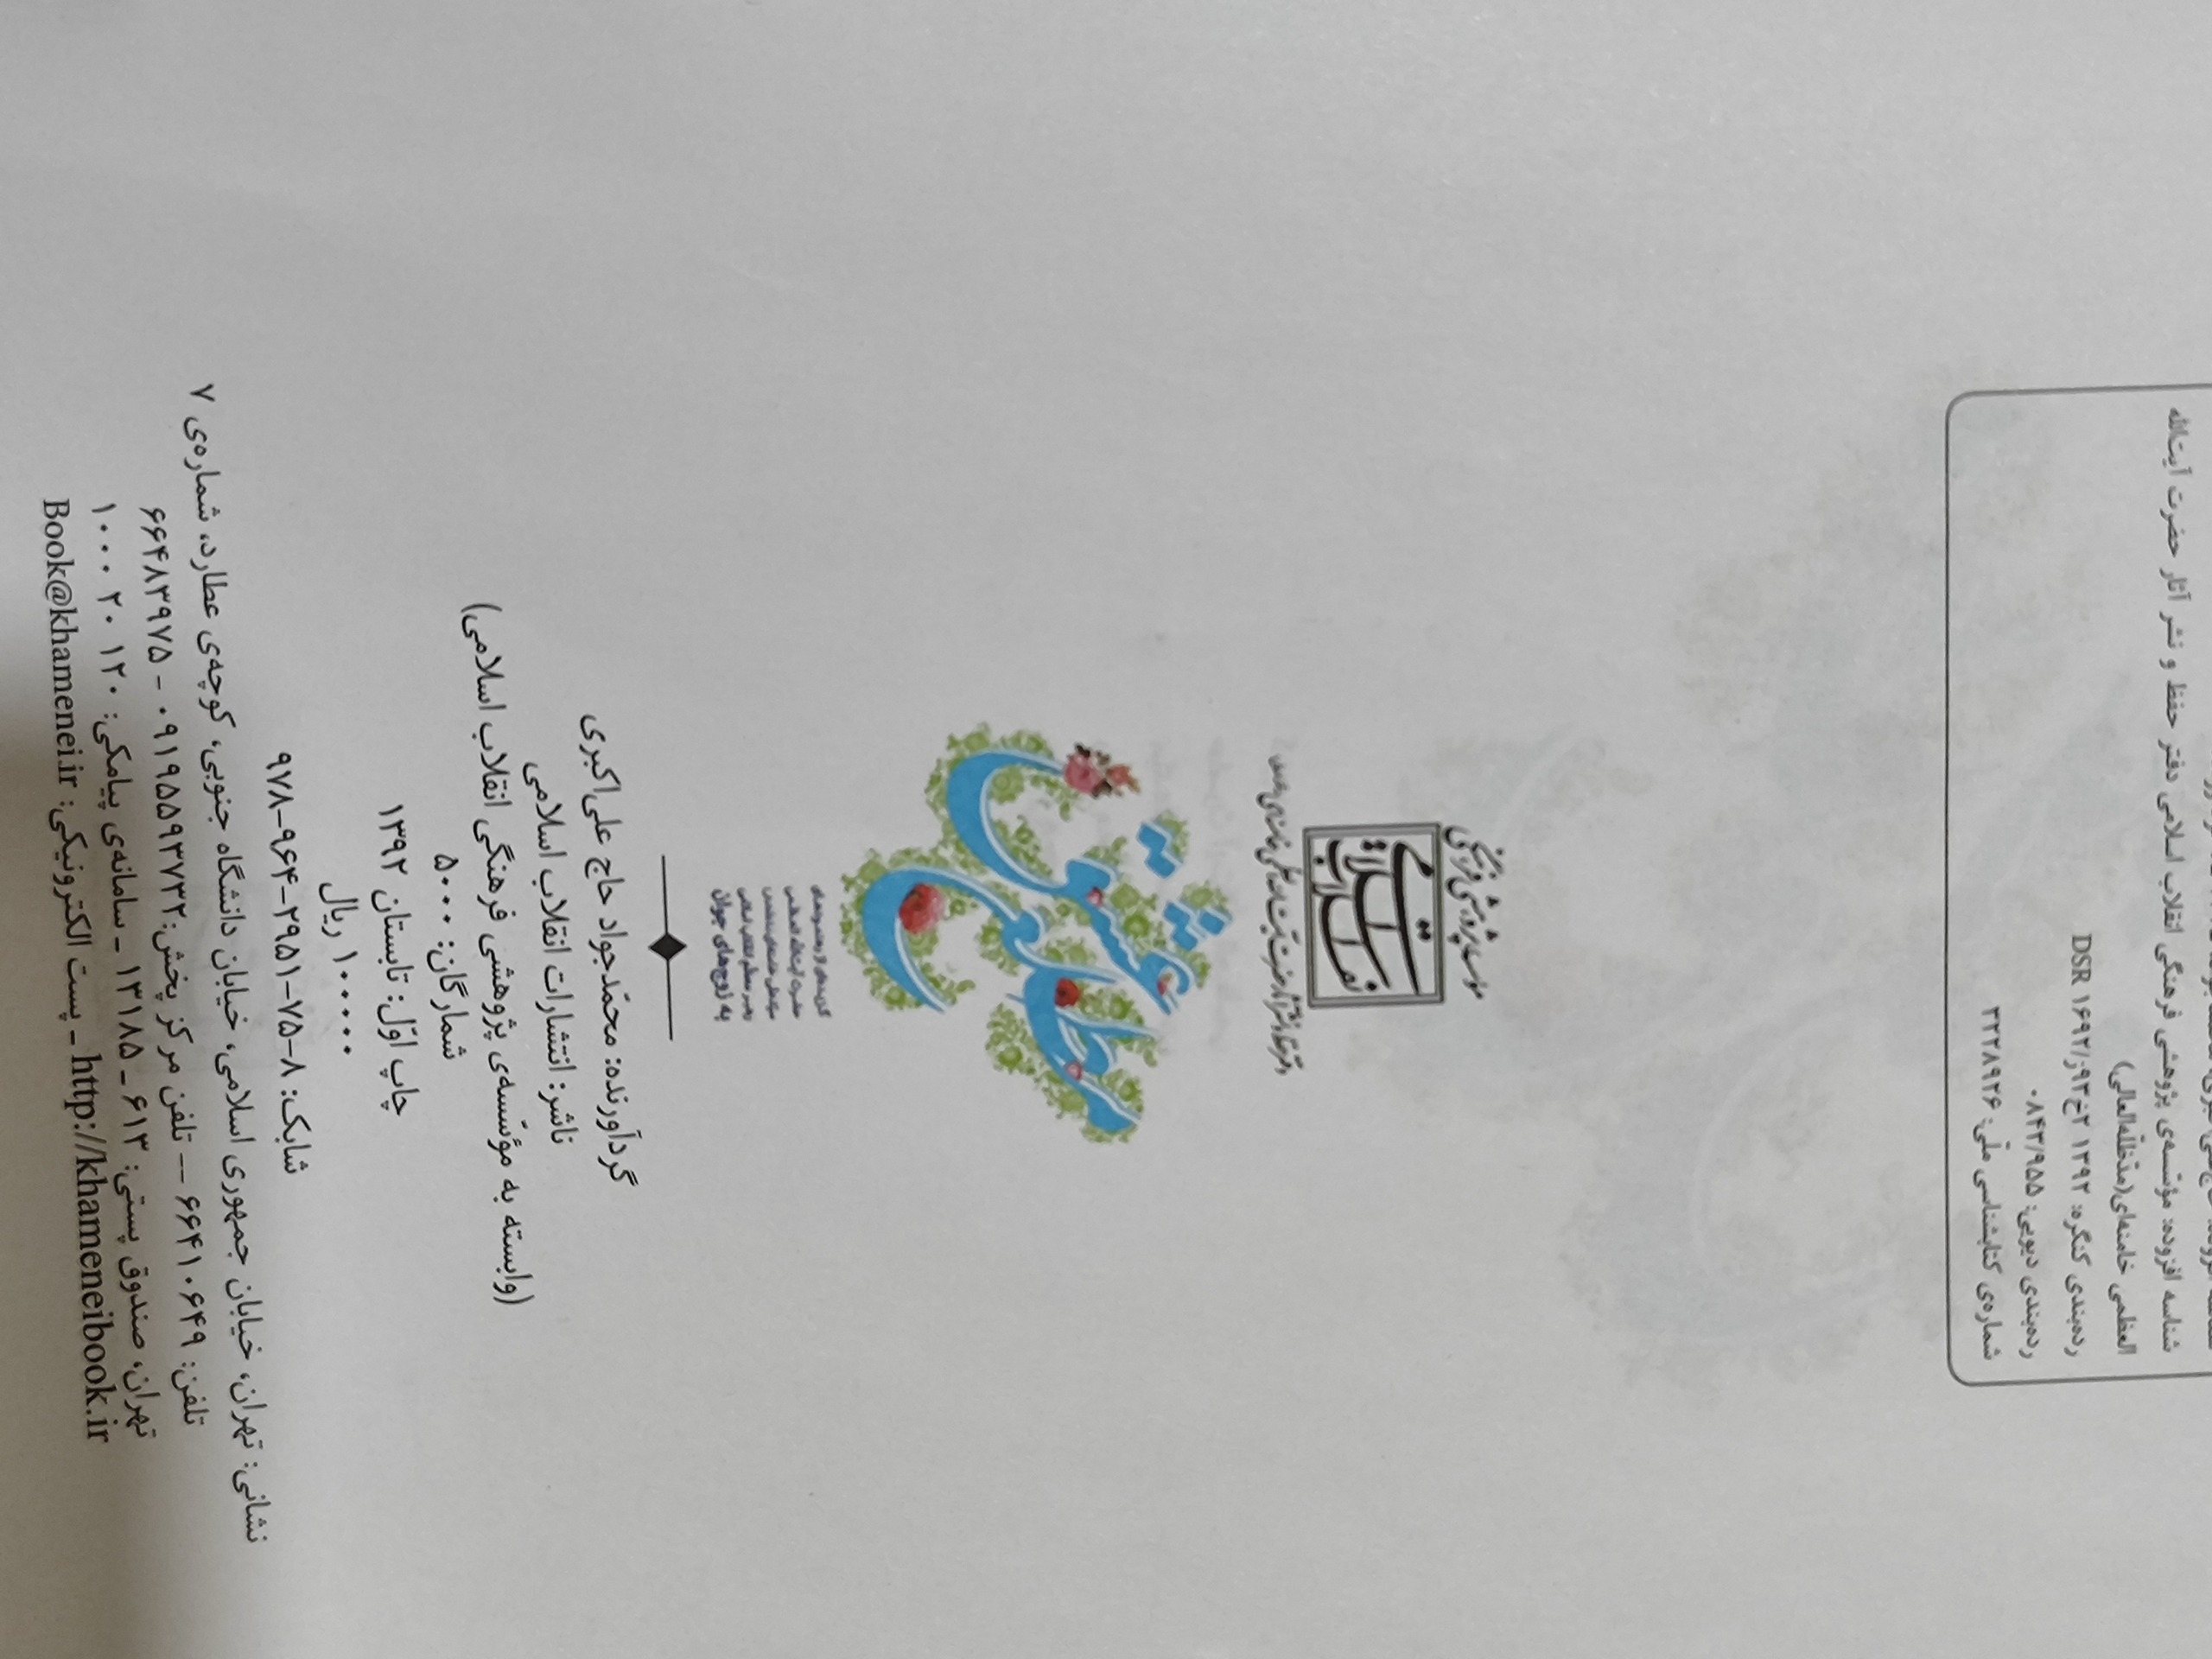 شناسه افزوده: مؤسسه‌ی پژوهشی فرهنگی انقلاب اسلامی دفتر حفظ و نشر آثار حضرت آیت‌الله
العظمی خامنه‌ای(مدّظلّه‌العالی)
رده‌بندی کنگره: ۱۳۹۲ ۲خ۹۳ز/DSR ۱۶۹۲
رده‌بندی دیویی: ۹۵۵/۰۸۴۳
شماره‌ی کتابشناسی ملّی: ۳۲۲۸۹۲۶
مؤسسه پژوهشی فرهنگی
انقلاب اسلامی
مطلع عشق
به زوج‌های جوان
گردآورنده: محمّدجواد حاج علی‌اکبری
ناشر: انتشارات انقلاب اسلامی
(وابسته به مؤسّسه‌ی پژوهشی فرهنگی انقلاب اسلامی)
شمارگان: ۵۰۰۰
چاپ اوّل: تابستان ۱۳۹۲
۱۰۰۰۰۰ ریال
شابک: ۸-۷۵-۲۹۵۱-۹۶۴-۹۷۸
نشانی: تهران، خیابان جمهوری اسلامی، خیابان دانشگاه جنوبی، کوچه‌ی عطارد، شماره‌ی ۷
تلفن: ۶۶۴۱۰۶۴۹ -- تلفن مرکز پخش: ۰۹۱۹۵۵۹۳۷۳۲ - ۶۶۴۸۳۹۷۵
تهران، صندوق پستی: ۶۱۳ - ۱۳۱۸۵ - سامانه‌ی پیامکی: ۱۰۰۰ ۲۰ ۱۲۰
http://khameneibook.ir - پست الکترونیکی: Book@khamenei.ir